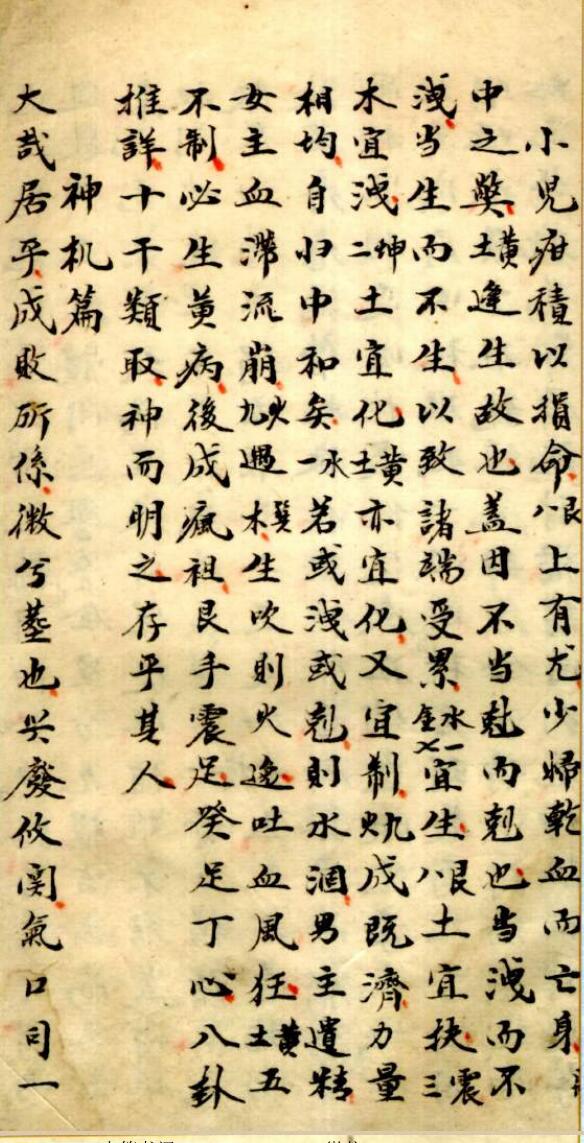 小児疳積以損命艮八上有尤少婦乾血而亡身
中之獘黄土逢生故也蓋因不当尅而剋也当洩而不
洩当生而不生以致諸端受累水一金七宜生艮八土宜扶震三
木宜洩坤二土宜化黄土亦宜化又宜制九火成既濟力量
相均自归中和矣水一若或洩或尅則水涸男主遺精
女主血滯流崩火九遇巽木生吹則火逸吐血風狂黄土五
不制必生黄病後成瘋祖艮手震足癸足丁心八卦
推詳十干類取神而明之存乎其人
神机篇
大哉居乎成敗所係微兮墓也兴廢攸関氣口司一